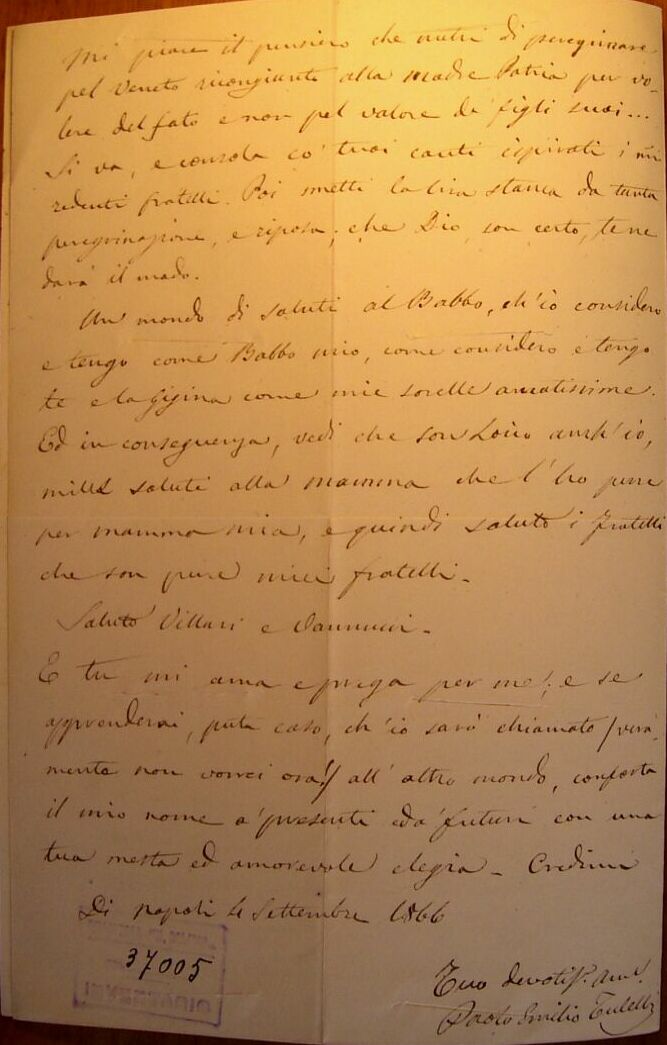 Mi piace il pensiero che nutri di peregrinare
pel Veneto ricongiunto alla madre Patria per vo-
lere del fato e non pel valore de' figli suoi...
Si va, e consola co' tuoi canti ispirati i mi
redenti fratelli. Poi smetti la lira stanca da tanta
peregrinazione, e riposa; che Dio, son certo, te ne
darà il modo.
Un mondo di saluti al Babbo, ch'io considero
e tengo come Babbo mio, come considero e tengo
te e la Gigina come mie sorelle amatissime.
Ed in conseguenza, vedi che son Loico anch'io,
mille saluti alla mamma che l'ho pure
per mamma mia, e quindi saluto i fratelli
che son pure miei fratelli.
Saluto Villari e Vannucci.
E tu mi ama e prega per me; e se
apprenderai, puta caso, ch'io sarò chiamato (vera-
mente non vorrei ora!) all'altro mondo, conforta
il mio nome a' presenti ed a' futuri con una
tua mesta ed amorevole elegia. Credimi
Di Napoli 4 Settembre 1866
37005
Tuo devotis. am.
Paolo Emilio Tulelli